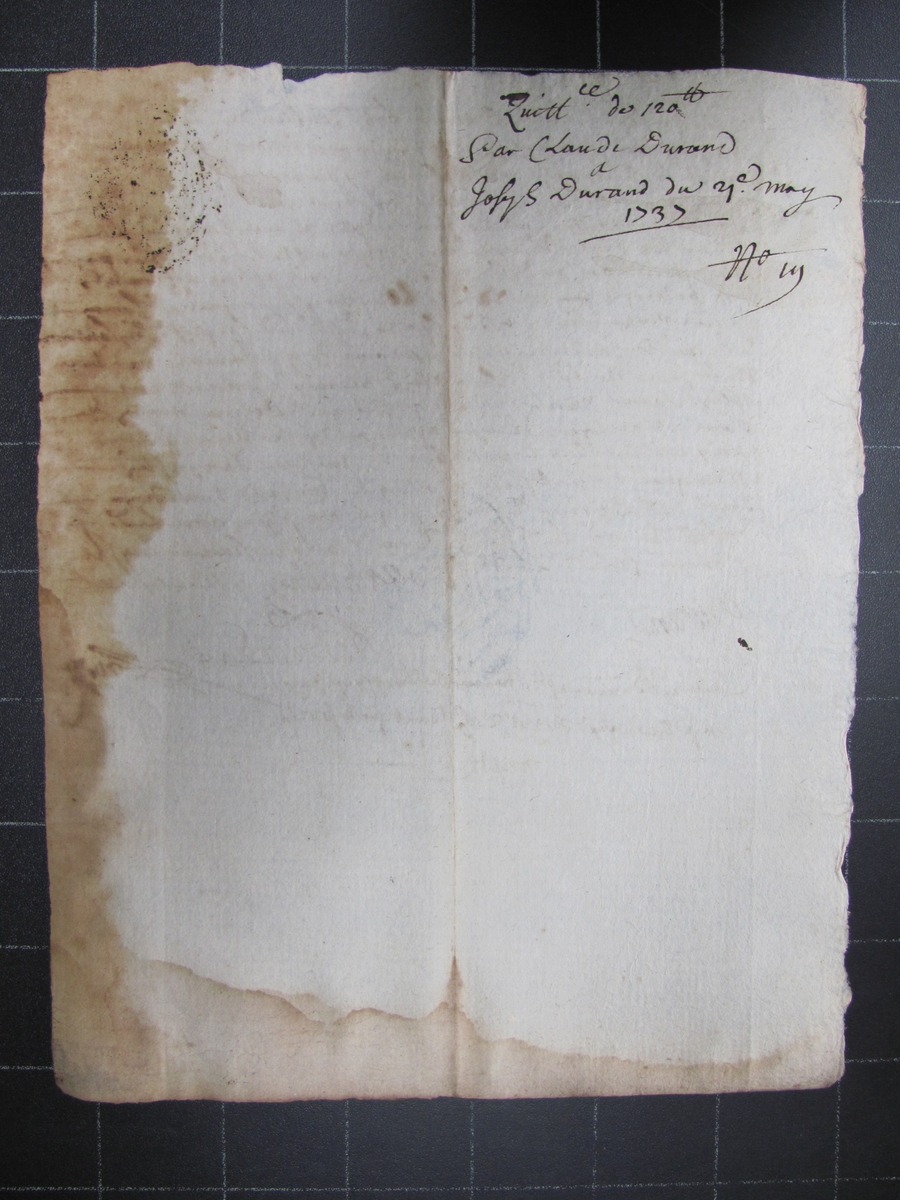 Quitt.ce de 120 tt
Par Claude Durand
a
Joseph Durand du 21e may
1737
No